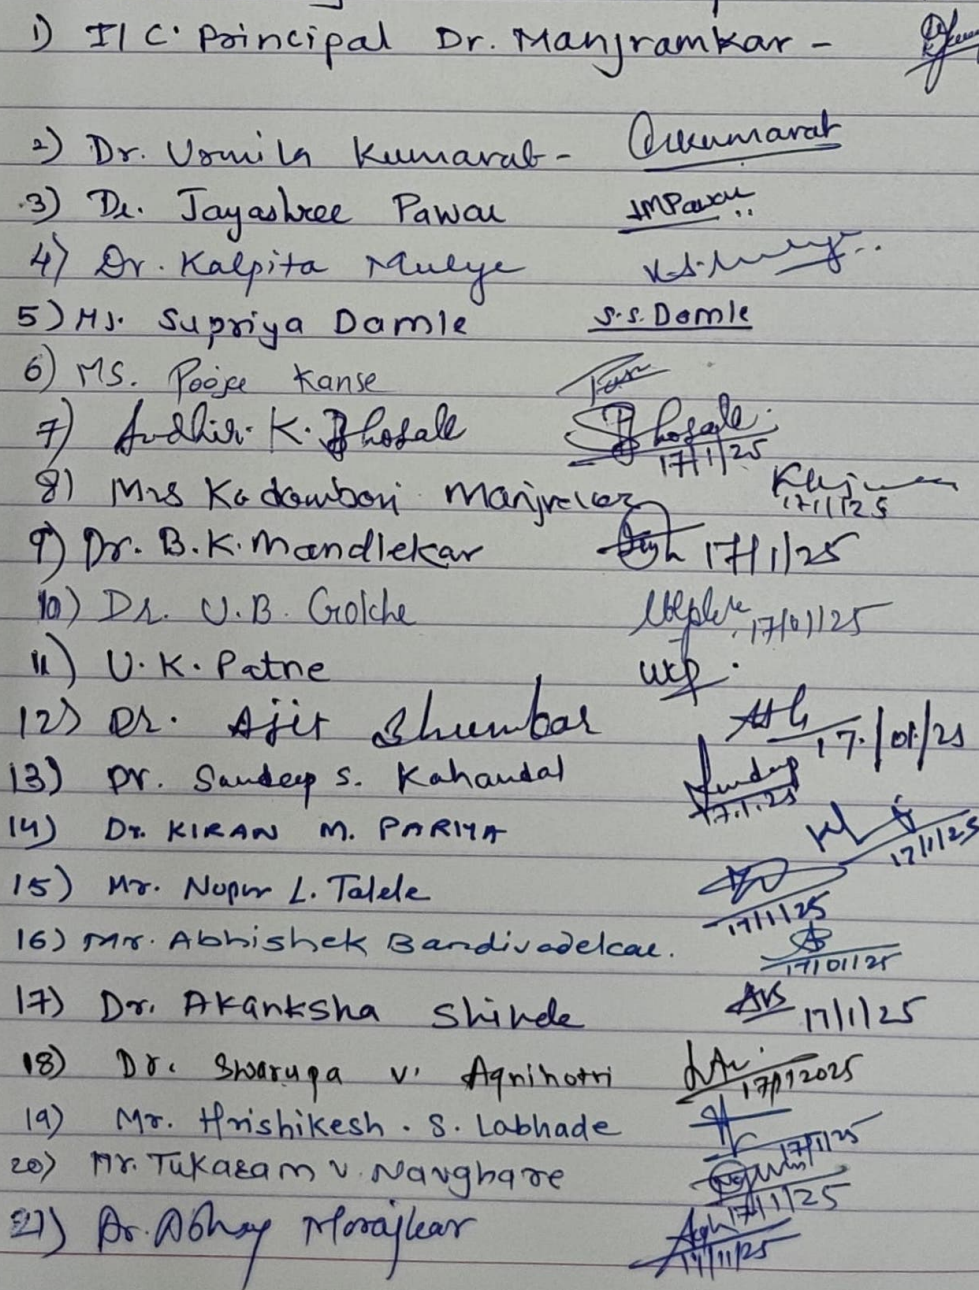 1) I/C. Principal Dr. Manjramkar -
2) Dr. Urmila Kumarat - Ukumarat
3) Dr. Jayashree Pawar JMPawar
4) Dr. Kalpita Mulye
5) Ms. Supriya Damle S.S. Damle
6) MS. Pooja Kanse
7) Sudhir. K. Bhosale SBhosale
17/1/25
8) Mrs Kadambari Manjrekar
17/1/25
9) Dr. B.K. Mandlekar 17/1/25
10) Dr. U.B. Golche 17/01/25
11) U.K. Patne ukp.
12) Dr. Ajit Bhumbar 17/01/25
13) Dr. Sandeep S. Kahandal
17.1.25
14) Dr. KIRAN M. PARIYA 17/1/25
15) Mr. Nupur L. Talele
17/1/25
16) Mr. Abhishek Bandivadekar.
17/01/25
17) Dr. Akanksha Shinde AVS 17/1/25
18) Dr. Swarupa V. Agnihotri
17/1/2025
19) Mr. Hrishikesh. S. Labhade 17/1/25
20) Mr. Tukaram V. Navghare
17/1/25
21) Dr. Abhay Morajkar
17/1/25